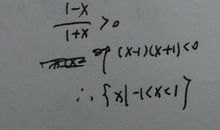 (1-x)/(1+x) > 0
(x-1)(x+1)<0
∴ {x|-1<x<1}